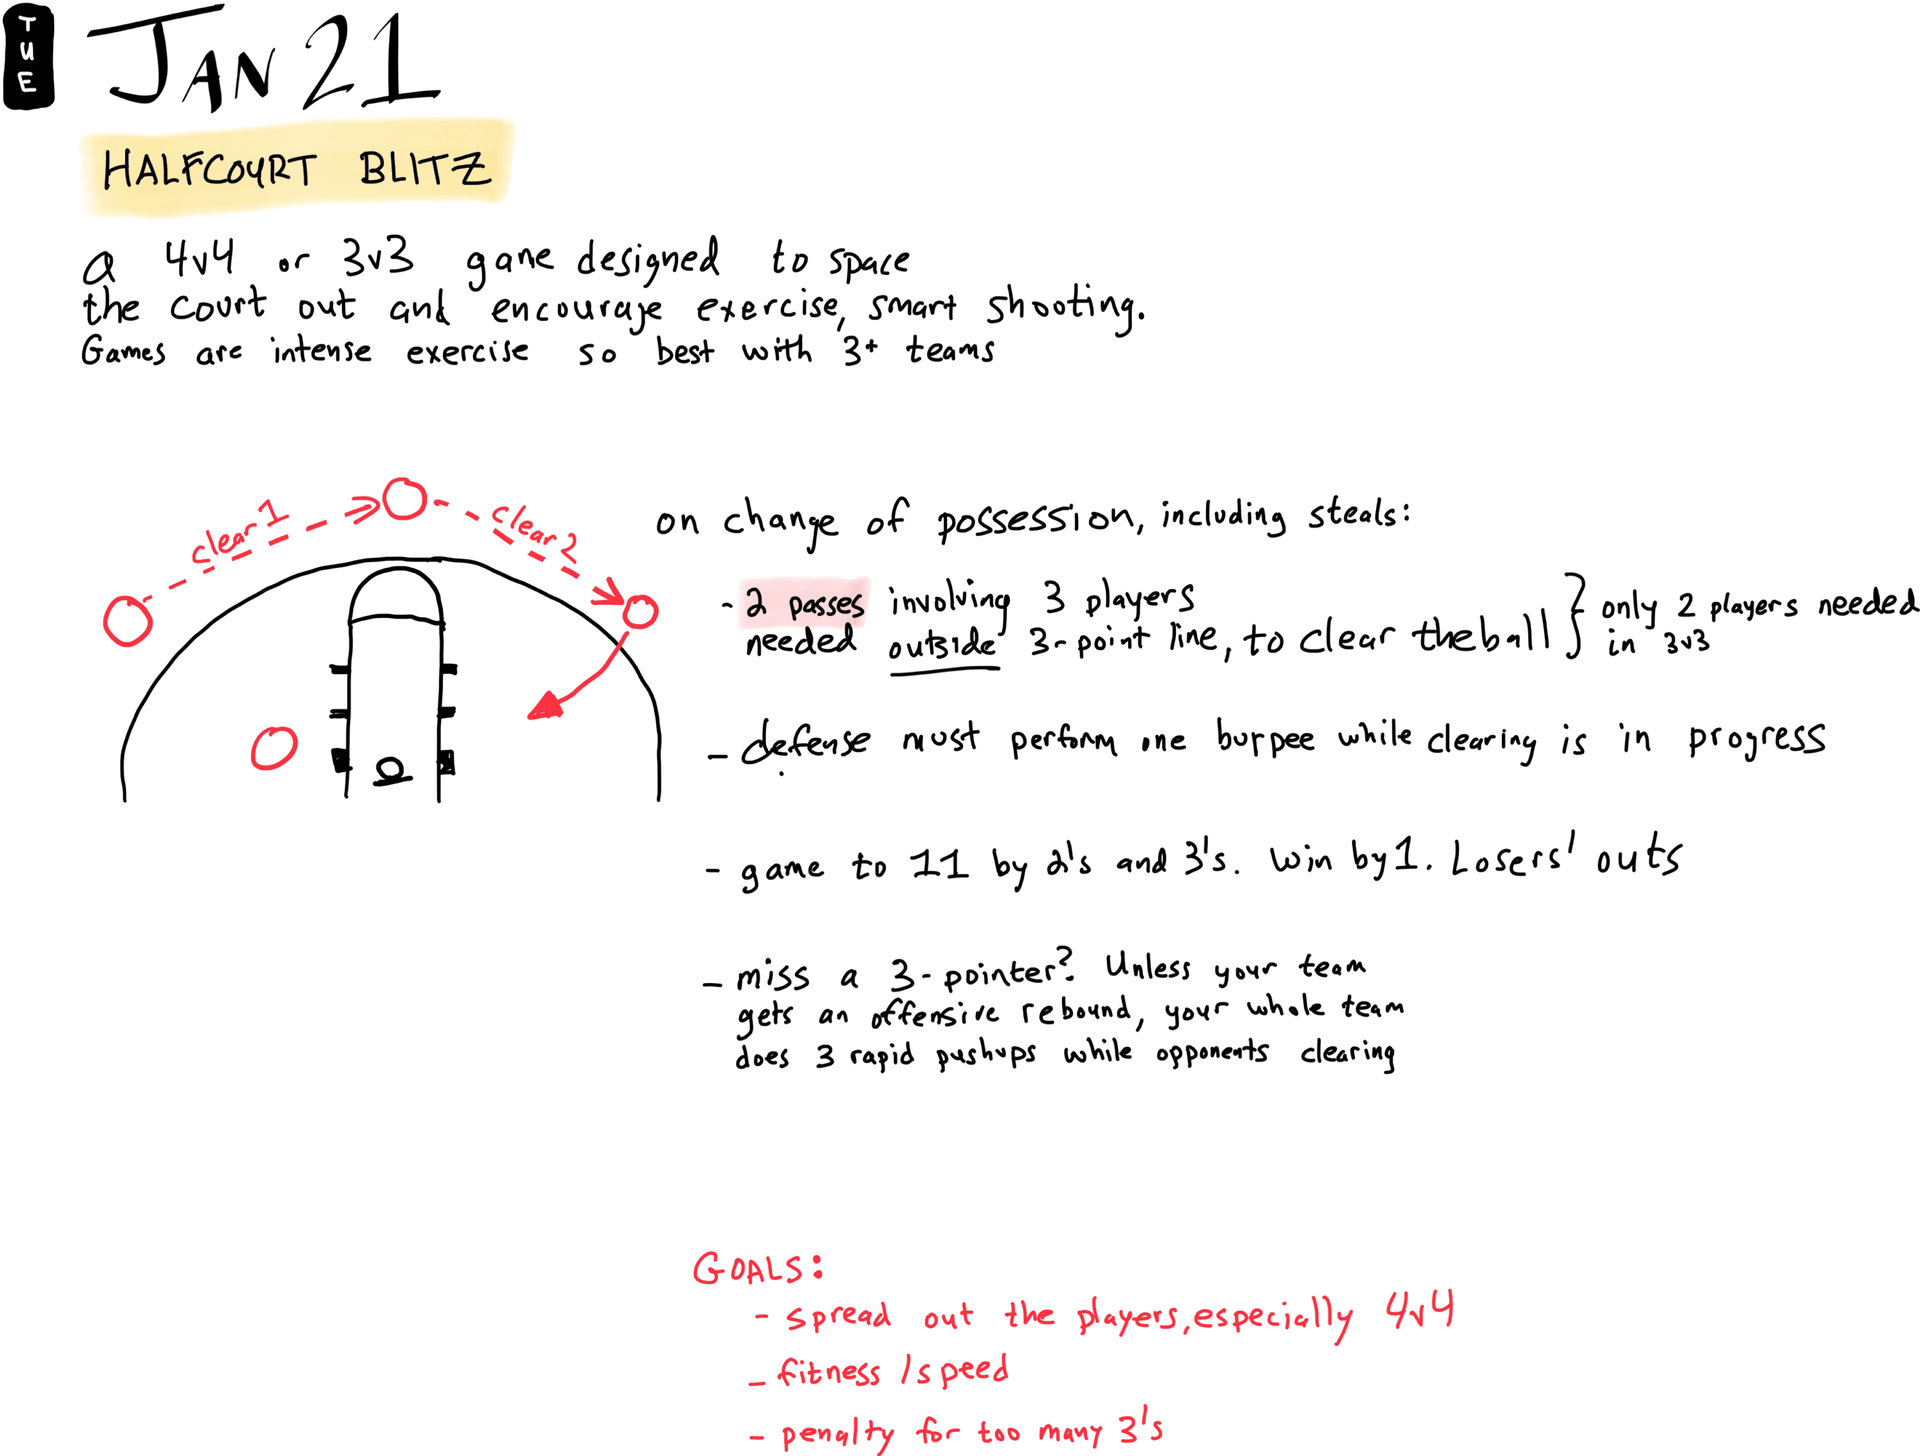 TUE
JAN 21
HALFCOURT BLITZ
a 4v4 or 3v3 game designed to space
the court out and encourage exercise, smart shooting.
Games are intense exercise so best with 3+ teams
clear 1
clear 2
on change of possession, including steals:
- 2 passes involving 3 players
needed outside 3-point line, to clear the ball
} only 2 players needed
in 3v3
- defense must perform one burpee while clearing is in progress
- game to 11 by 2's and 3's. Win by 1. Losers' outs
- miss a 3-pointer? Unless your team
gets an offensive rebound, your whole team
does 3 rapid pushups while opponents clearing
GOALS:
- spread out the players, especially 4v4
- fitness / speed
- penalty for too many 3's